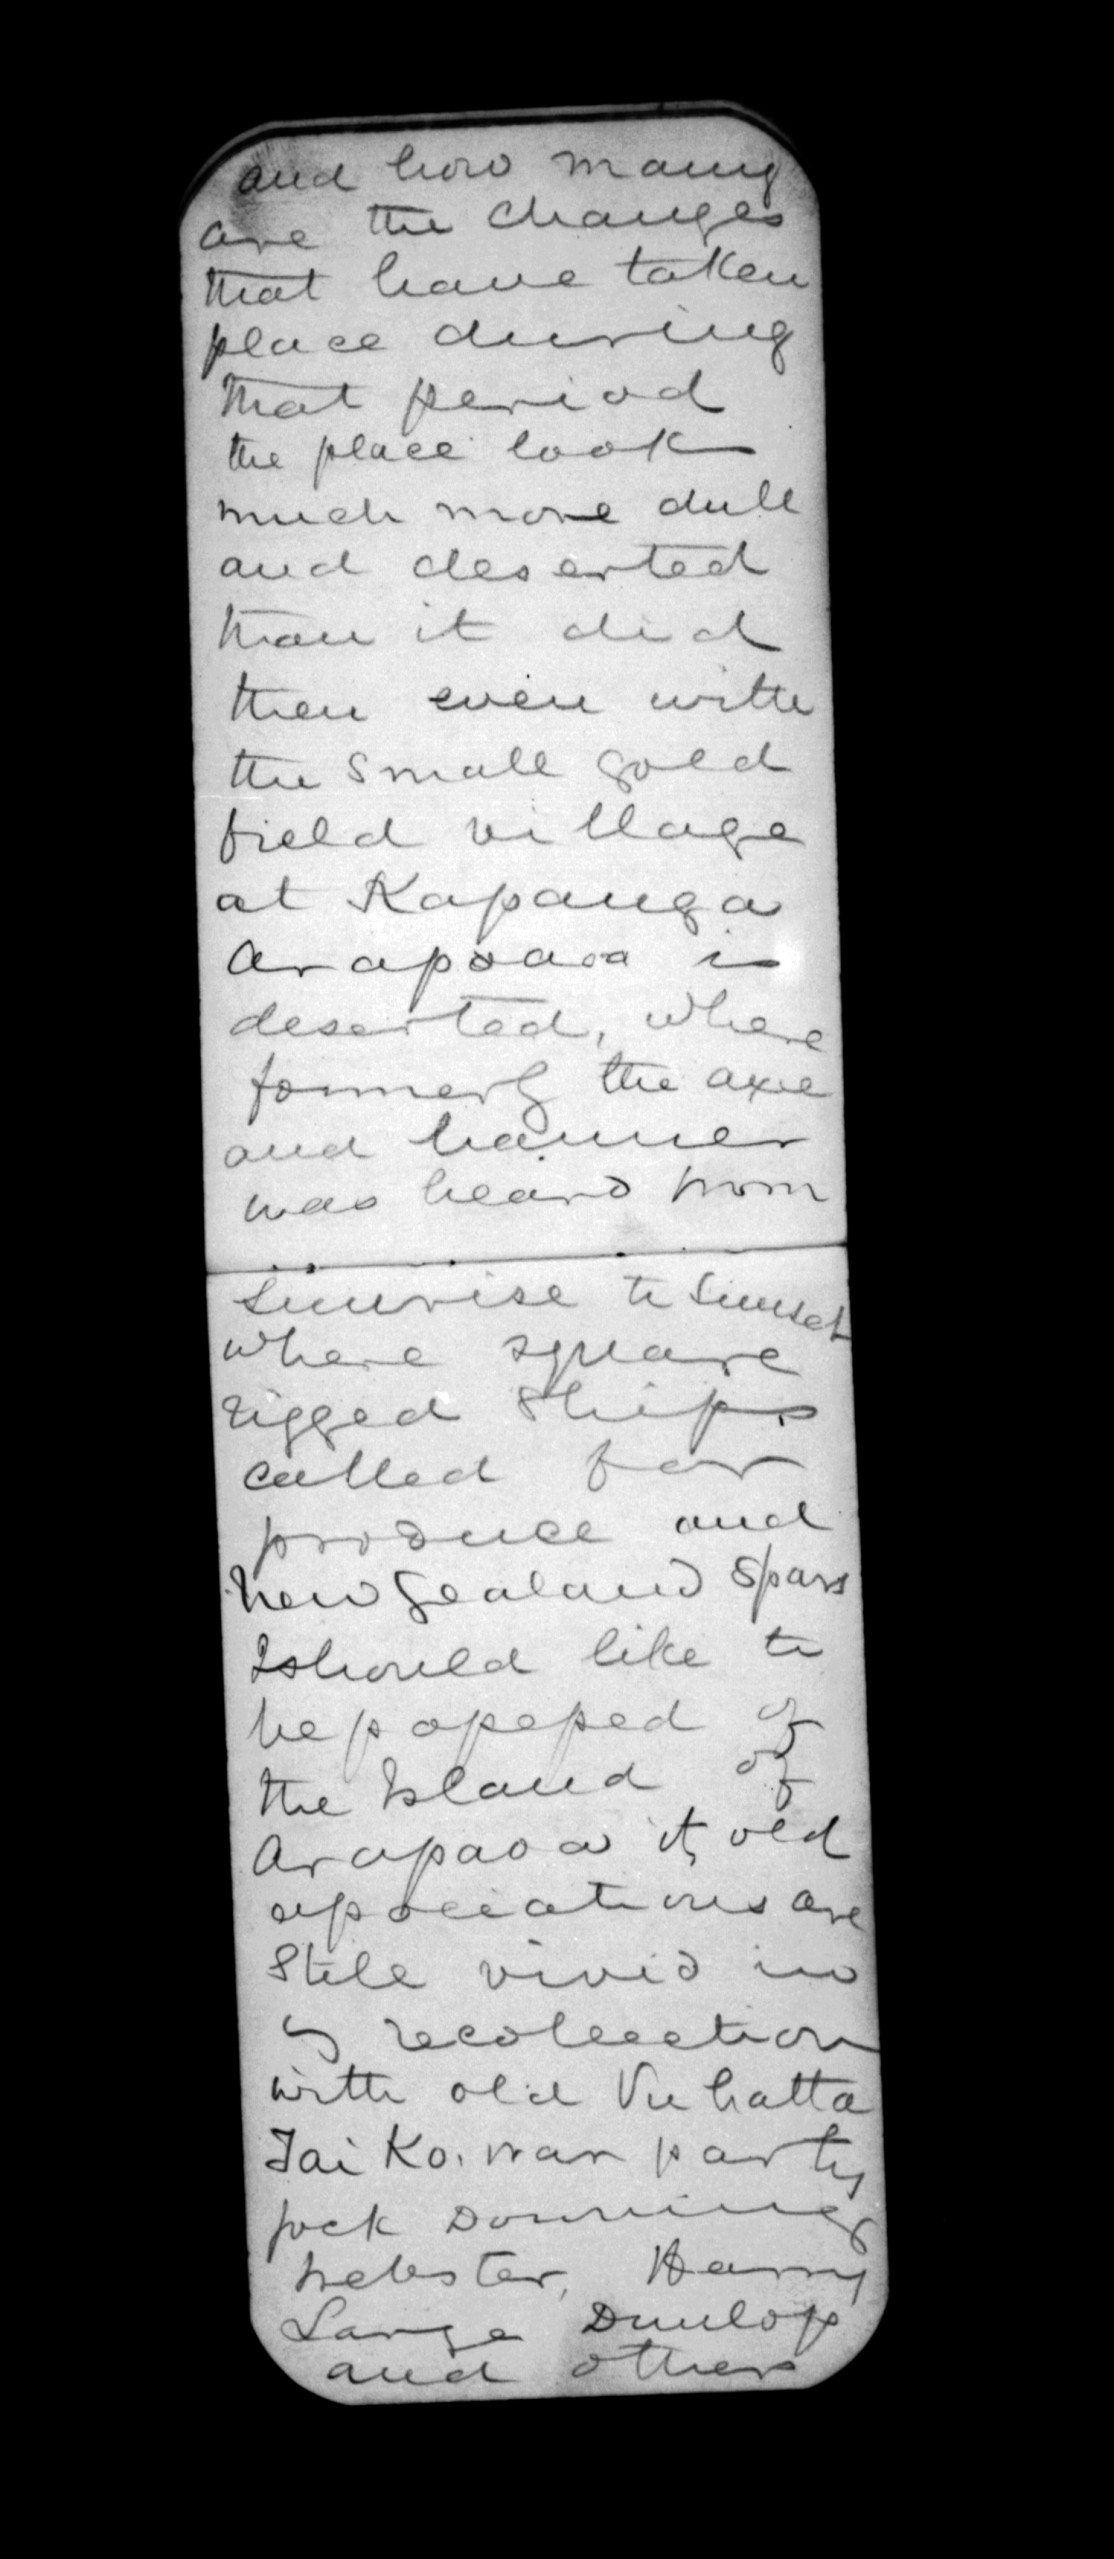 and how many
are the changes
that have taken
place during
that period
the place look
much more dull
and deserted
than it did
then even with
the small gold
field village
at Kapanga
Arapaoa is
deserted, where
formerly the axe
and hammer
was heard from
Sunrise to Sunset
where square
rigged Ships
called for
produce and
New Zealand Spars
I should like to
be possessed of
the Island of
Arapaoa its old
associations are
Still vivid in
recollection
with old
Tai Ko. war party
Jock Downing
Webster, Harry
Large Dunlop
and others